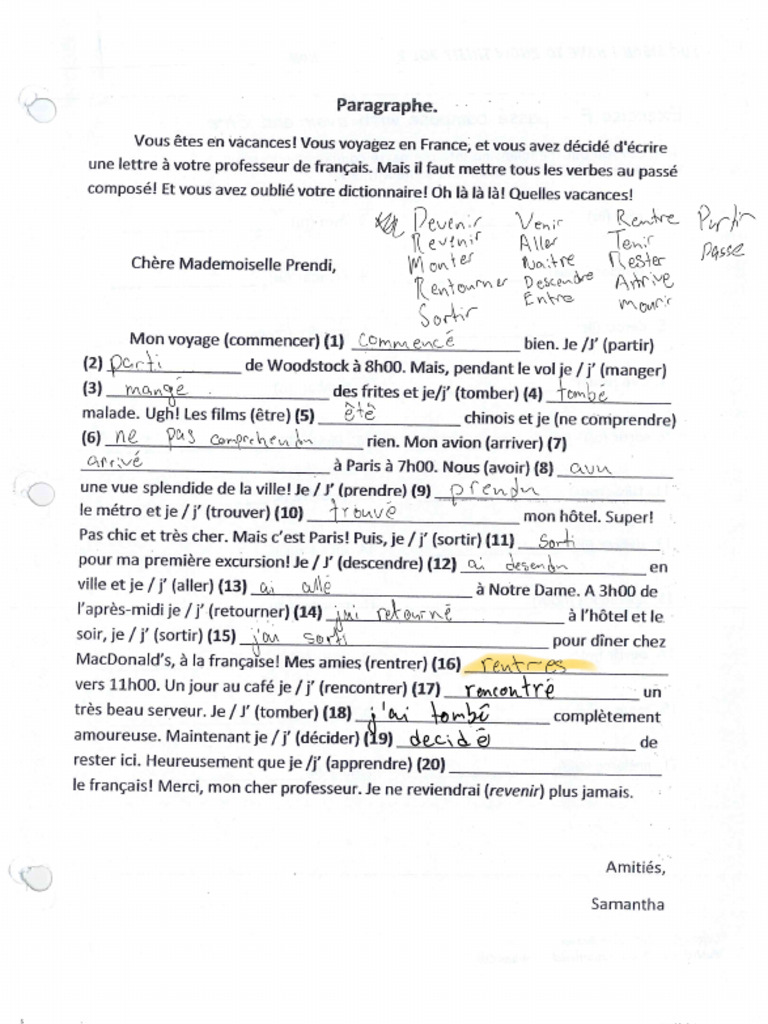 Paragraphe.
Vous êtes en vacances! Vous voyagez en France, et vous avez décidé d'écrire
une lettre à votre professeur de français. Mais il faut mettre tous les verbes au passé
composé! Et vous avez oublié votre dictionnaire! Oh là là là! Quelles vacances!
Devenir Venir Rentre Partir
Revenir Aller Tenir Passe
Monter Naitre Rester
Rentourner Descendre Arrive
Sortir Entre mourir
Chère Mademoiselle Prendi,
Mon voyage (commencer) (1) commencé bien. Je /J' (partir)
(2) parti de Woodstock à 8h00. Mais, pendant le vol je / j' (manger)
(3) mangé des frites et je/j' (tomber) (4) tombé
malade. Ugh! Les films (être) (5) été chinois et je (ne comprendre)
(6) ne pas comprehendu rien. Mon avion (arriver) (7)
arrivé à Paris à 7h00. Nous (avoir) (8) avu
une vue splendide de la ville! Je / J' (prendre) (9) prendu
le métro et je / j' (trouver) (10) trouvé mon hôtel. Super!
Pas chic et très cher. Mais c'est Paris! Puis, je / j' (sortir) (11) sorti
pour ma première excursion! Je / J' (descendre) (12) ai desendu en
ville et je / j' (aller) (13) ai allé à Notre Dame. A 3h00 de
l'après-midi je / j' (retourner) (14) j'ai retourné à l'hôtel et le
soir, je / j' (sortir) (15) j'ai sorti pour dîner chez
MacDonald's, à la française! Mes amies (rentrer) (16) rentres
vers 11h00. Un jour au café je / j' (rencontrer) (17) rencontré un
très beau serveur. Je / J' (tomber) (18) j'ai tombé complètement
amoureuse. Maintenant je / j' (décider) (19) decidé de
rester ici. Heureusement que je /j' (apprendre) (20)
le français! Merci, mon cher professeur. Je ne reviendrai (revenir) plus jamais.
Amitiés,
Samantha